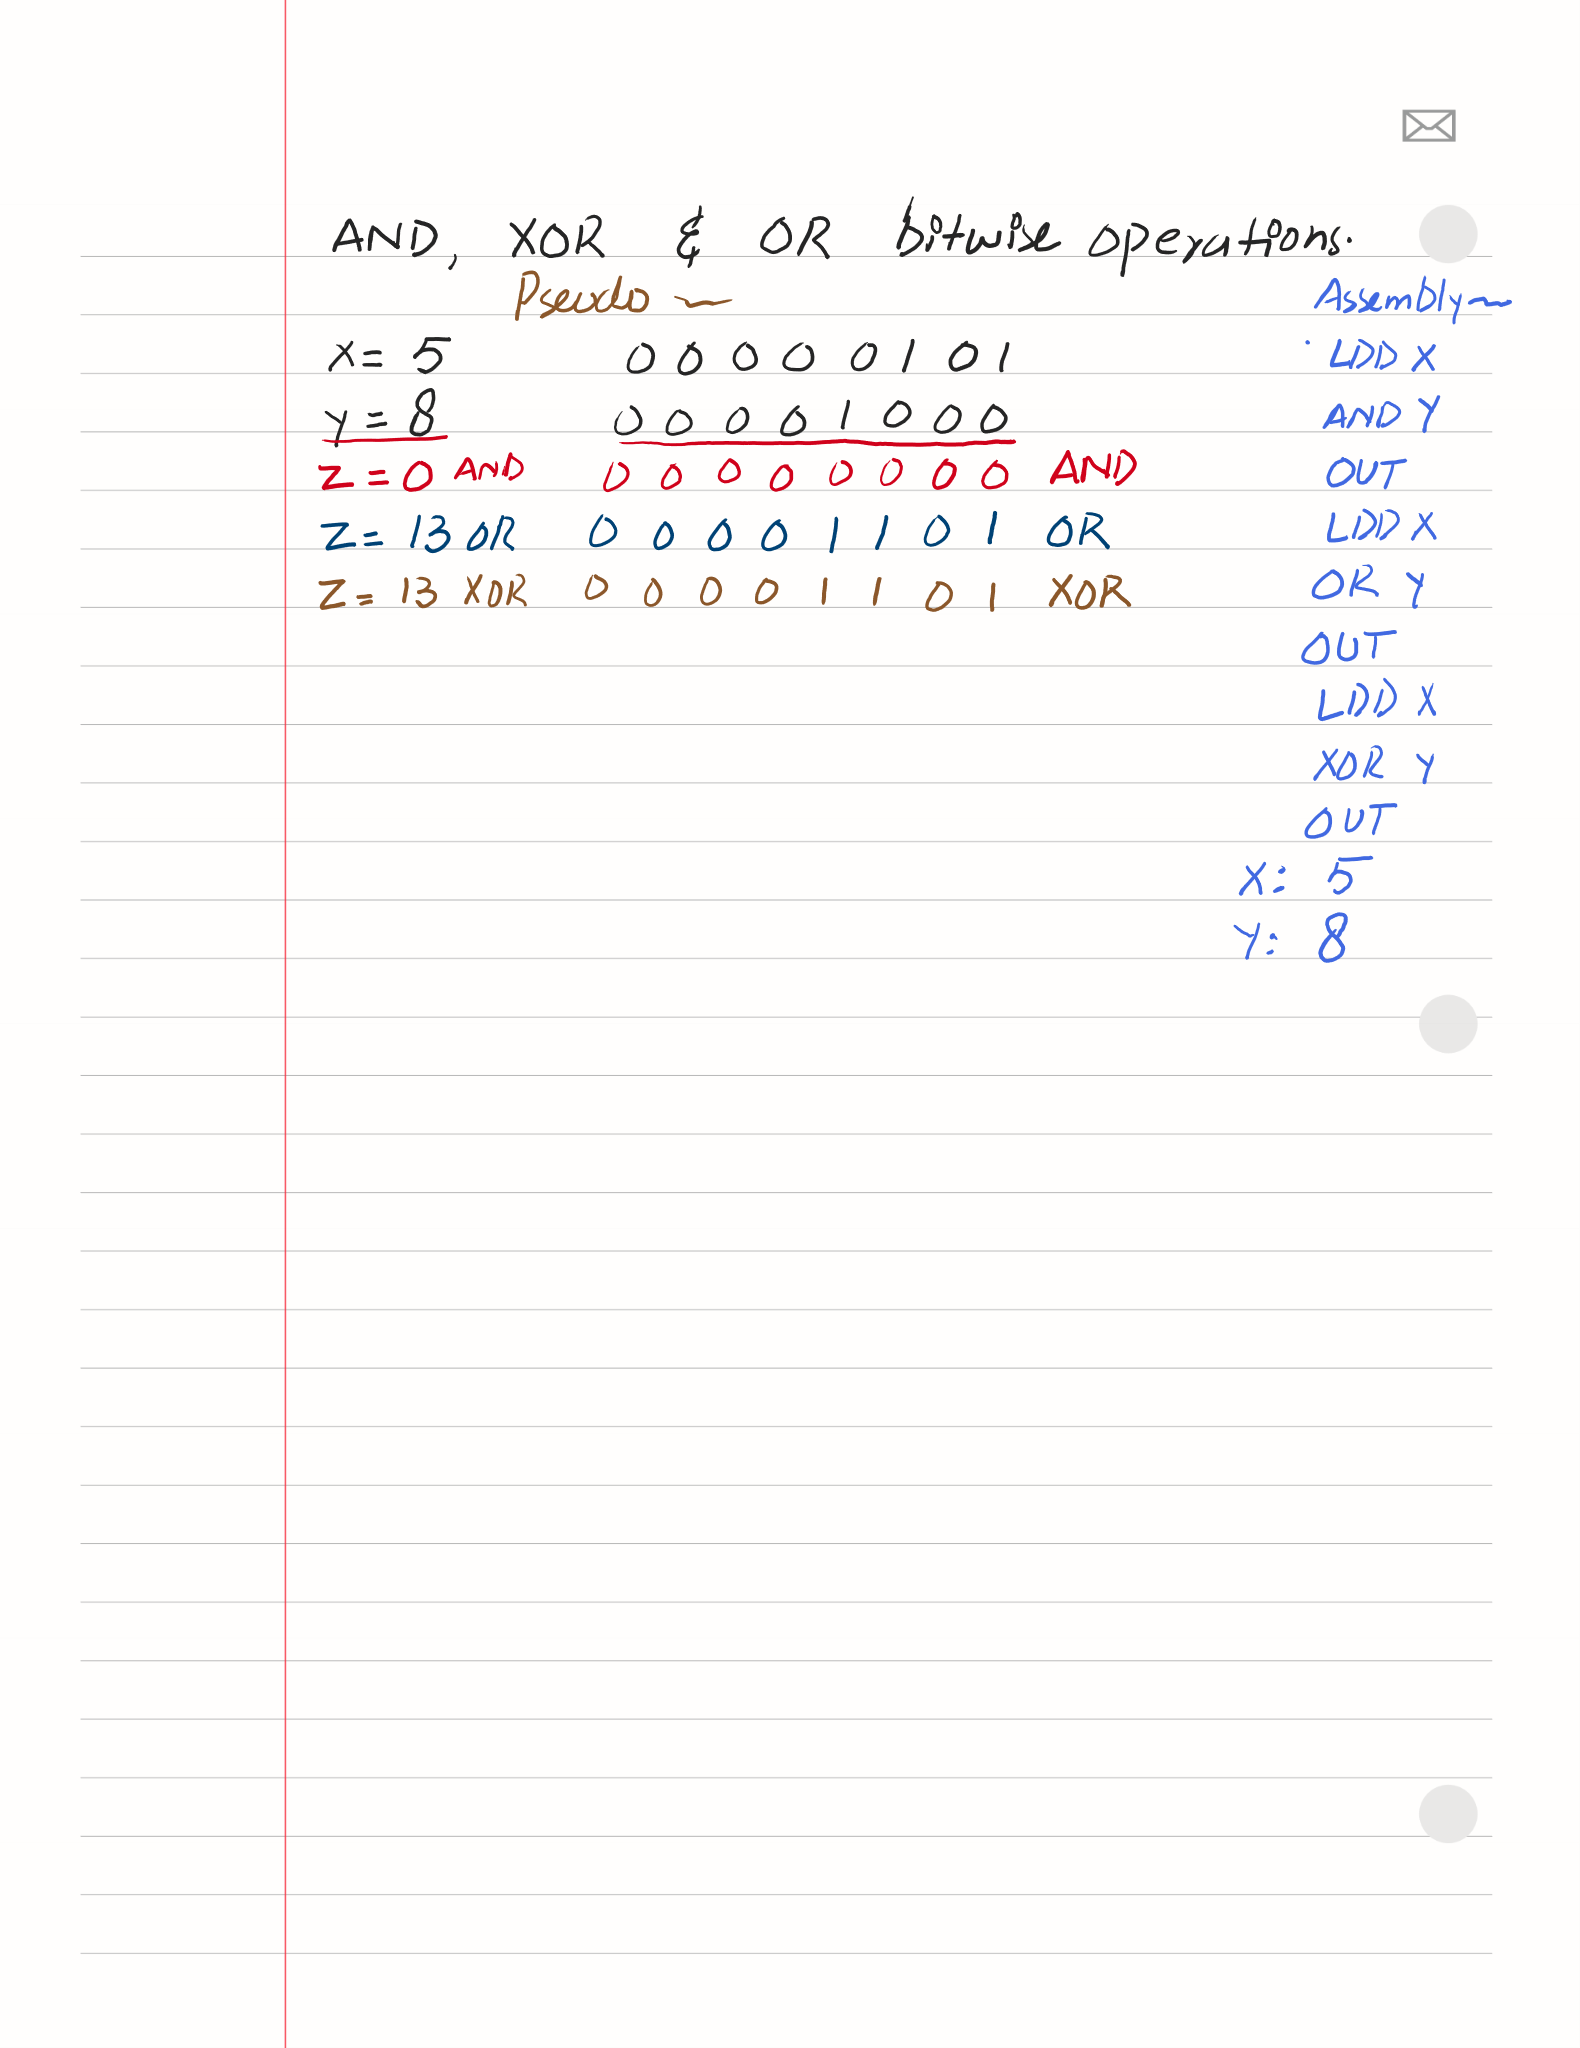 AND, XOR & OR bitwise operations.
Pseudo ~
X = 5 0 0 0 0 0 1 0 1
Y = 8 0 0 0 0 1 0 0 0
Z = 0 AND 0 0 0 0 0 0 0 0 AND
Z = 13 OR 0 0 0 0 1 1 0 1 OR
Z = 13 XOR 0 0 0 0 1 1 0 1 XOR
Assembly ~
LDD X
AND Y
OUT
LDD X
OR Y
OUT
LDD X
XOR Y
OUT
X: 5
Y: 8